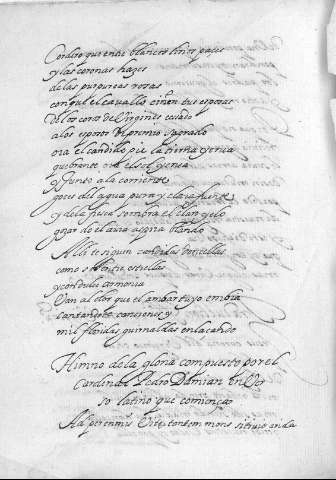 Cordero que entre blancos lirios paces
y las coronas hazes
de las purpureas rosas
con que el cavallo ciñen tus esposas
De los coros de Virgines cercado
a los esposos das premio sagrado
ora el candido pie la tierna yerva
quebrante ora el sol yerva
y Junto a la corriente
goces del agua pura y clara fuente
y de la fresca sombra el claro yelo
gozar de el aire aspira blando
Alli te siguen candidas donzellas
como a Febo estrellas
y con dulce armonia
Van al olor que el ambar tuyo embia
Cantandote canciones y
mil floridas guirnaldas enlaçando
Himno de la gloria compuesto por el
Cardenal Pedro Damian En Ver
so latino que comiença
Ad perennis Vite fontem mens sitiuit arida